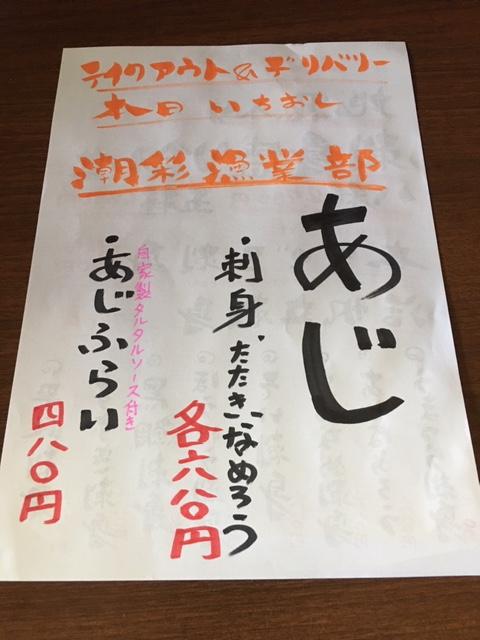 テイクアウト&デリバリー
本日 いちおし
潮彩漁業部
あじ
・刺身、たたき、なめろう
各六八〇円
自家製タルタルソース付き
・あじふらい
四八〇円